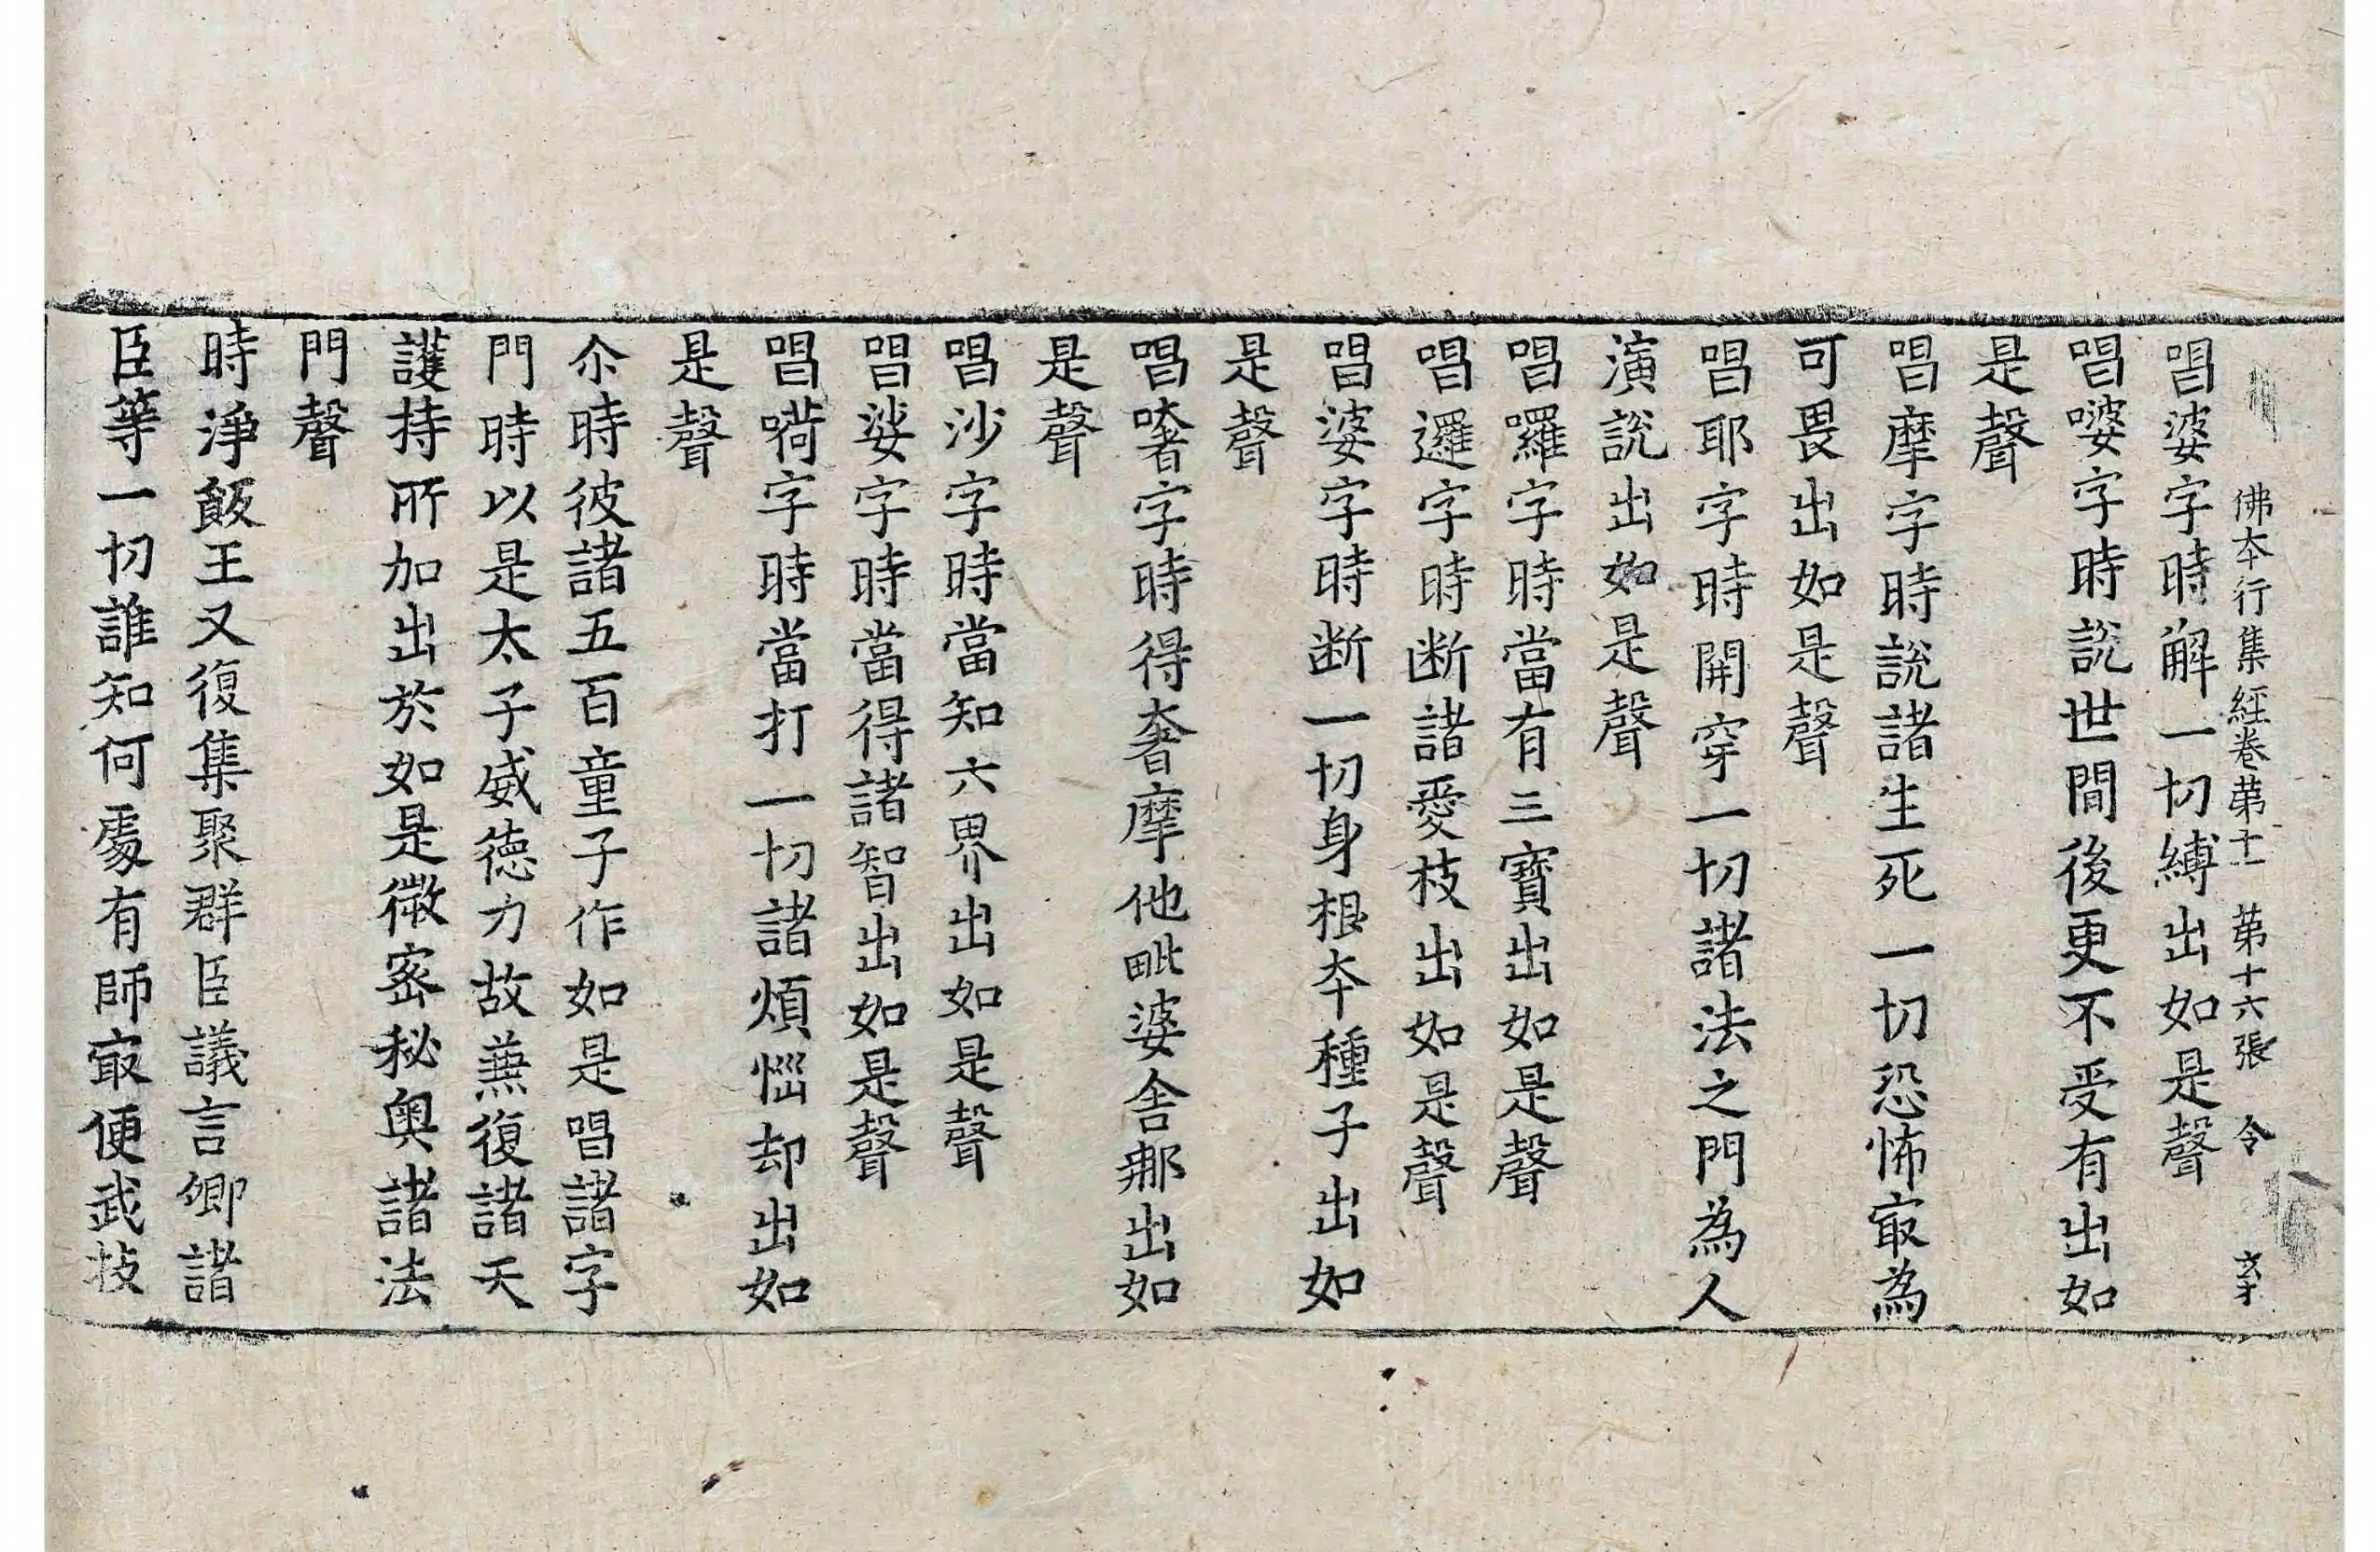 佛夲行集經卷苐十一　苐十六張　令
唱婆字時解一切縛出如是聲
唱嘙字時説世間後更不受有出如
是聲
唱摩字時説諸生死一切恐怖㝡為
可畏出如是聲
唱耶字時開穿一切諸法之門為人
演説出如是聲
唱囉字時當有三寶出如是聲
唱邏字時断諸愛枝出如是聲
唱婆字時断一切身根夲種子出如
是聲
唱嗏字時得奢摩他毗婆舍那出如
是聲
唱沙字時當知六界出如是聲
唱娑字時當得諸智出如是聲
唱嗬字時當打一切諸煩惱却出如
是聲
尒時彼諸五百童子作如是唱諸字
門時以是太子威德力故兼復諸天
護持所加出於如是微密秘奥諸法
門聲
時淨飯王又復集聚群臣議言卿諸
臣等一切誰知何處有師㝡便武技